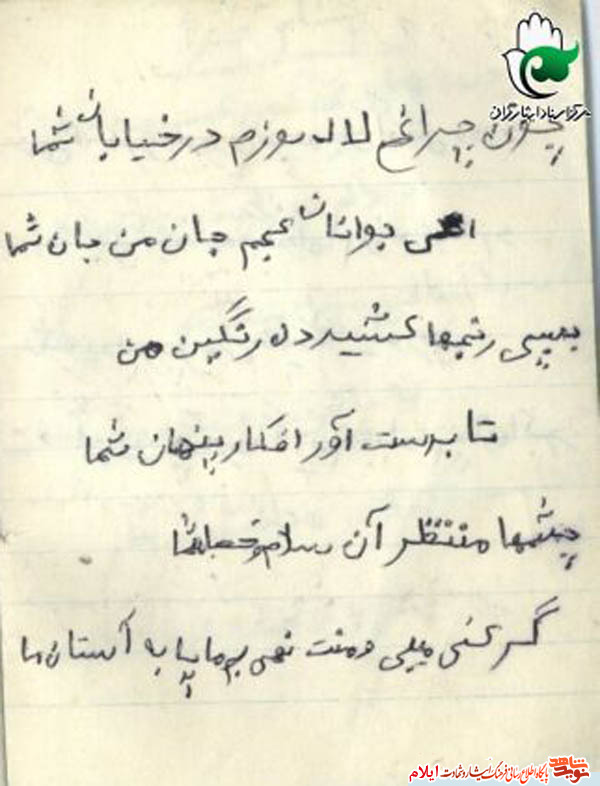 مرکز اسناد ایثارگران
چون چراغ لاله سوزم در خیابان شما
ای جوانان عجم جان من جان شما
بسی رنجها کشید دل رنگین من
تا بدست آورد افکار پنهان شما
چشمها منتظر آن سلام شما
گر کنی میلی و منت نهی بر ما بیا به آستان ما
نوید شاهد
پایگاه اطلاع رسانی فرهنگ ایثار و شهادت ایلام